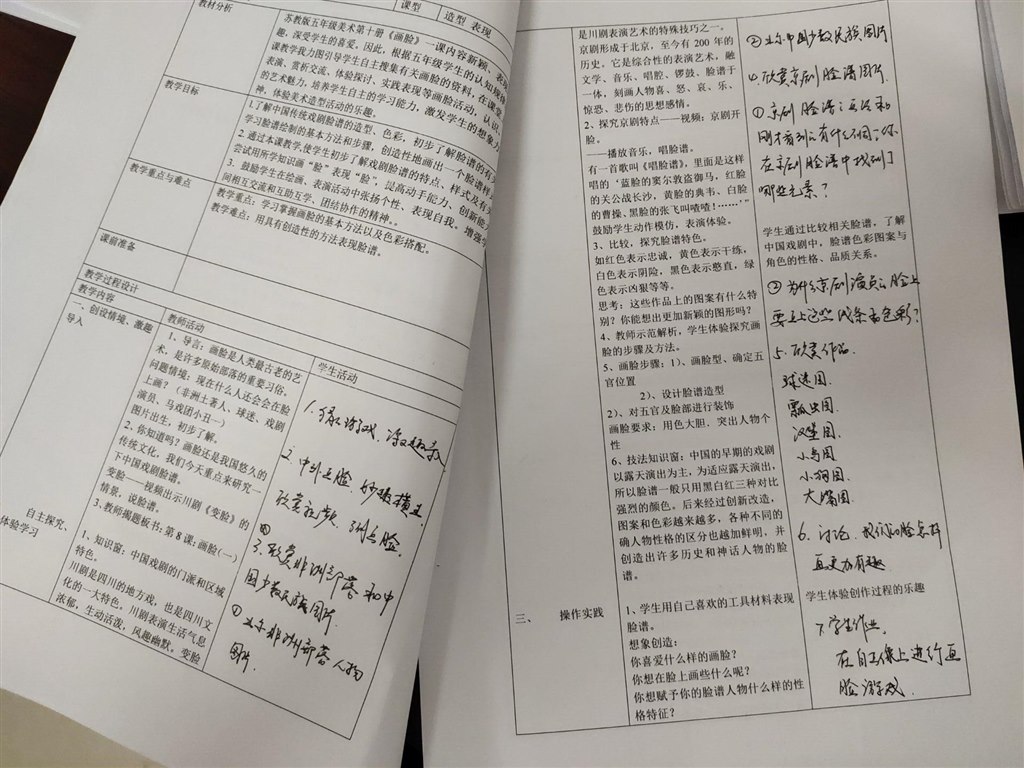 教材分析
课型
造型 表现
苏教版五年级美术第十册《画脸》一课内容新颖、表现
趣,深受学生的喜爱,因此,根据五年级学生的认知规律
课教学我力图引导学生自主搜集有关画脸的资料,在课堂
表演、赏析交流、体验探讨、实践表现等画脸活动,认识、
的艺术魅力,培养学生自主的学习能力,激发学生的想象力
神,体验美术造型活动的乐趣。
教学目标
1.了解中国传统戏剧脸谱的造型、色彩,初步了解脸谱的
学习脸谱绘制的基本方法和步骤,创造性地画出一个脸谱样
2.通过本课教学,使学生初步了解戏剧脸谱的特点、样式及有关
尝试用所学知识画“脸”表现“脸”,提高动手能力、创新能
3. 鼓励学生在绘画、表演活动中张扬个性、表现自我。增强学
间相互交流和互助互学、团结协作的精神。。
教学重点与难点
教学重点:学习掌握画脸的基本方法以及色彩搭配。
教学难点:用具有创造性的方法表现脸谱。
课前准备
教学过程设计
教学内容
教师活动
学生活动
一、创设情境、激趣
导入
1、导言:画脸是人类最古老的艺
术,是许多原始部落的重要习俗。
问题情境:现在什么人还会会在脸
上画?(非洲土著人、球迷、戏剧
演员、马戏团小丑—)
图片出生,初步了解。
2、你知道吗?画脸还是我国悠久的
传统文化,我们今天重点来研究一
下中国戏剧脸谱。
变脸——视频出示川剧《变脸》的
情景,说脸谱。
3、教师揭题板书:第8课:画脸(一)
自主探究、
体验学习
1、知识窗:中国戏剧的门派和区域
特色。
川剧是四川的地方戏,也是四川文
化的一大特色。川剧表演生活气息
浓郁,生动活泼,风趣幽默。变脸
2. 中外画脸 妙趣横生
欣赏视频 画脸
3. 欣赏非洲部落和中
国少数民族图片
① 出示非洲部落人物
图片.
是川剧表演艺术的特殊技巧之一。
京剧形成于北京,至今有 200 年的
历史。它是综合性的表演艺术,融
文学、音乐、唱腔、锣鼓、脸谱于
一体,刻画人物喜、怒、哀、乐、
惊恐、悲伤的思想感情。
2、探究京剧特点——视频:京剧开
脸。
——播放音乐,唱脸谱。
有一首歌叫《唱脸谱》,里面是这样
唱的‘蓝脸的窦尔敦盗御马,红脸
的关公战长沙,黄脸的典韦、白脸
的曹操、黑脸的张飞叫喳喳!……’”
鼓励学生动作模仿,表演体验。
3、比较,探究脸谱特色。
如红色表示忠诚,黄色表示干练,
白色表示阴险,黑色表示憨直,绿
色表示凶狠等等。
思考:这些作品上的图案有什么特
别?你能想出更加新颖的图形吗?
4、教师示范解析,学生体验探究画
脸的步骤及方法。
5、画脸步骤:1)、画脸型、确定五
官位置
2)、设计脸谱造型
2)、对五官及脸部进行装饰
画脸要求:用色大胆.突出人物个
性
6、技法知识窗:中国的早期的戏剧
以露天演出为主,为适应露天演出,
所以脸谱一般只用黑白红三种对比
强烈的颜色。后来经过创新改造,
图案和色彩越来越多,各种不同的
确人物性格的区分也越加鲜明,并
创造出许多历史和神话人物的脸
谱。
② 出示中国少数民族图片
4. 欣赏京剧脸谱图片.
① 京剧脸谱画法和
刚才看到的有什么不同?你
在京剧脸谱中找到了
哪些元素?
学生通过比较相关脸谱,了解
中国戏剧中,脸谱色彩图案与
角色的性格、品质关系。
② 为什么京剧演员的脸上
要画上这些线条和色彩?
5. 欣赏作品.
球迷图.
瓢虫图.
汉堡图.
小鸟图
小狗图
大嘴图.
6. 讨论. 我们的脸怎样
画更加有趣
学生体验创作过程的乐趣
三、 操作实践
1、学生用自己喜欢的工具材料表现
脸谱。
想象创造:
你喜爱什么样的画脸?
你想在脸上画些什么呢?
你想赋予你的脸谱人物什么样的性
格特征?
7. 学生作业.
在自画像上进行画
脸游戏.